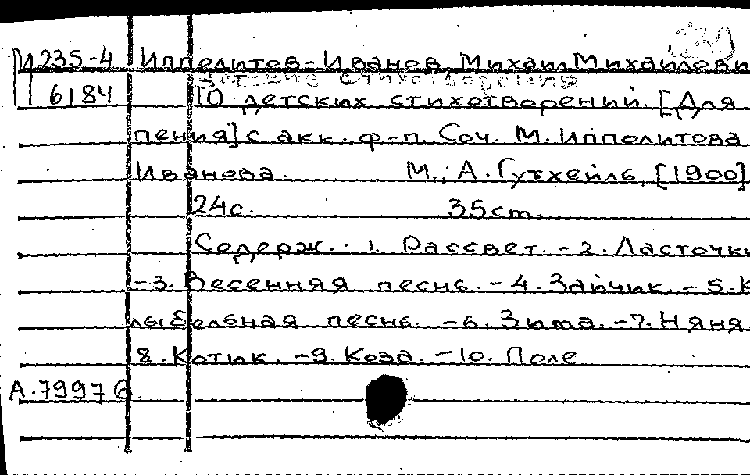 И235-4 Ипполитов-Иванов, Михаил Михайлови
Детские стихотворения
6184 10 детских стихотворений. [Для
пения] с акк. ф-п. Соч. М. Ипполитова
Иванова. М., А. Гутхейль, [1900]
24с. 35cm.
Содерж.: 1. Рассвет. - 2. Ласточки
-3. Весенняя песнь. - 4. Зайчик. - 5. К
лыбельная песнь. - 6. Зима. - 7. Няня
8. Котик. - 9. Коза. - 10. Поле
А.7997б